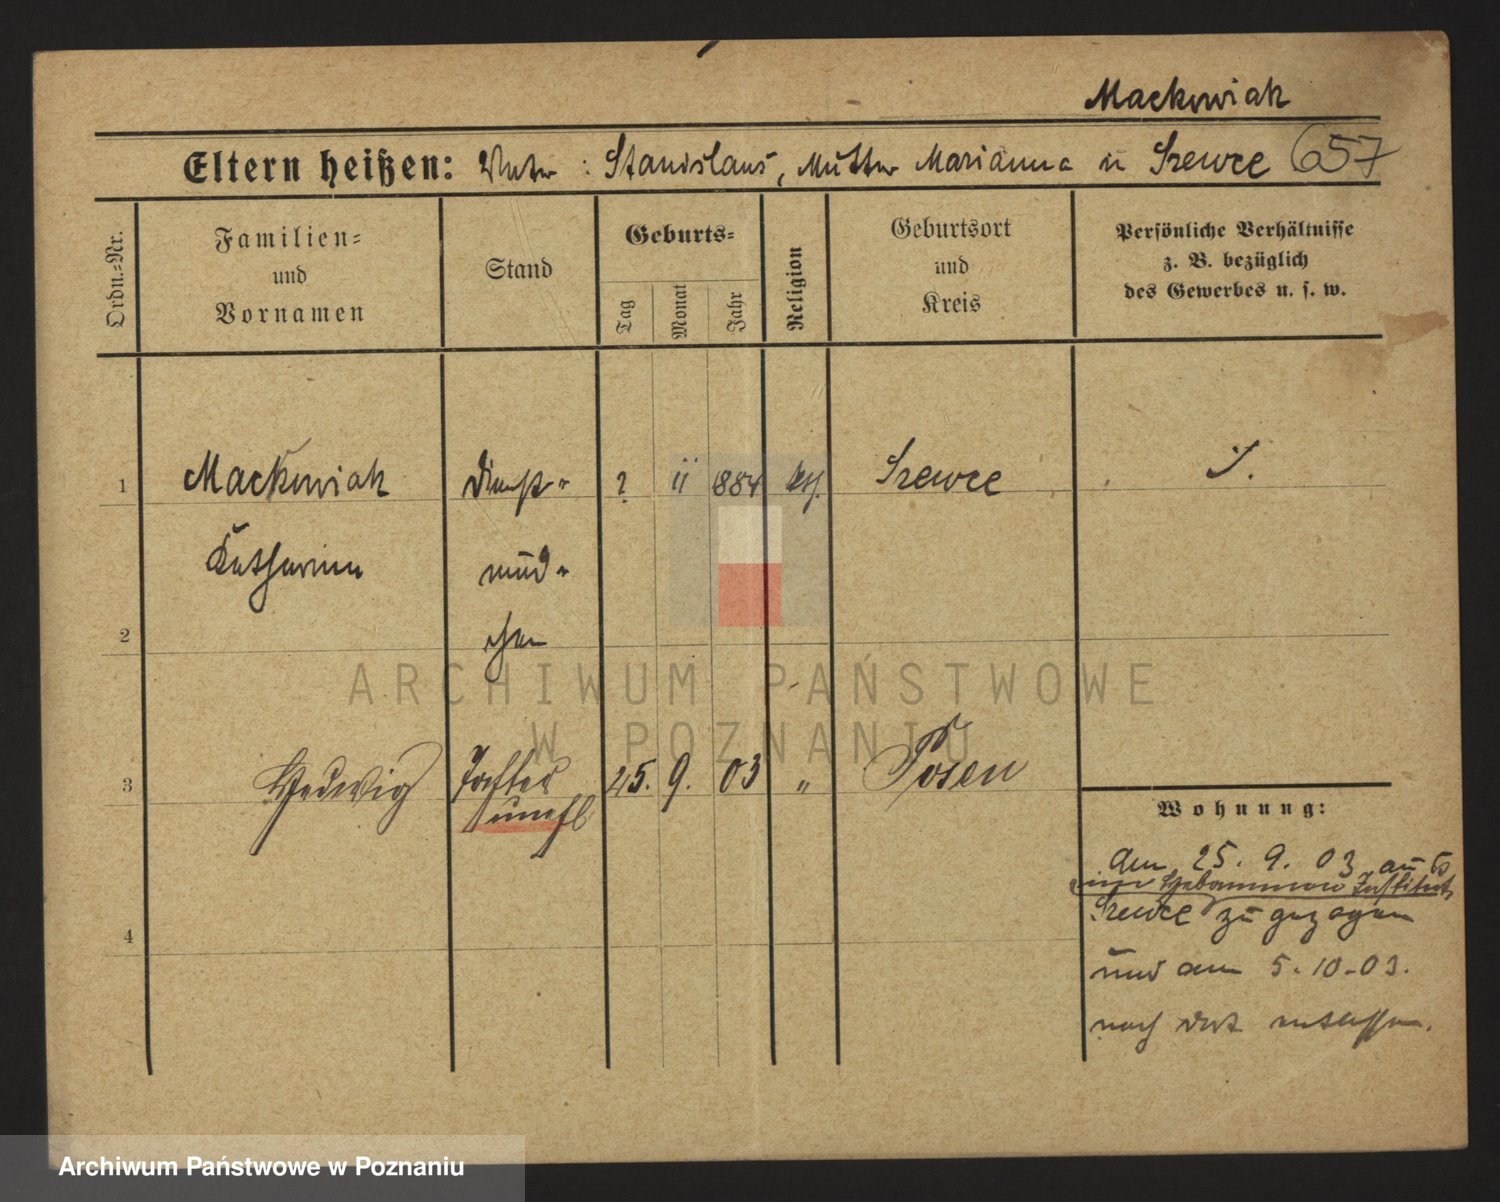 Mackowiak
Eltern heißen: Vater : Stanislaus, Mutter Marianna u Szewce 657
Ordn.=Nr.
Familien=
und
Vornamen
Stand
Geburts=
Tag
Monat
Jahr
Religion
Geburtsort
und
Kreis
Persönliche Verhältnisse
z. B. bezüglich
des Gewerbes u. s. w.
1 Mackowiak Dienst= ? 11 1884 kth. Szewce
Katharina mäd=
2 chen
3 Hedwig Tochter 25. 9. 03 " Posen
unehl
4
Wohnung:
am 25. 9. 03 aus
im Hebammen Institut
Szewce zugezogen
und am 5.10.03.
nach dort entlassen.
ARCHIWUM PAŃSTWOWE
W POZNANIU
Archiwum Państwowe w Poznaniu